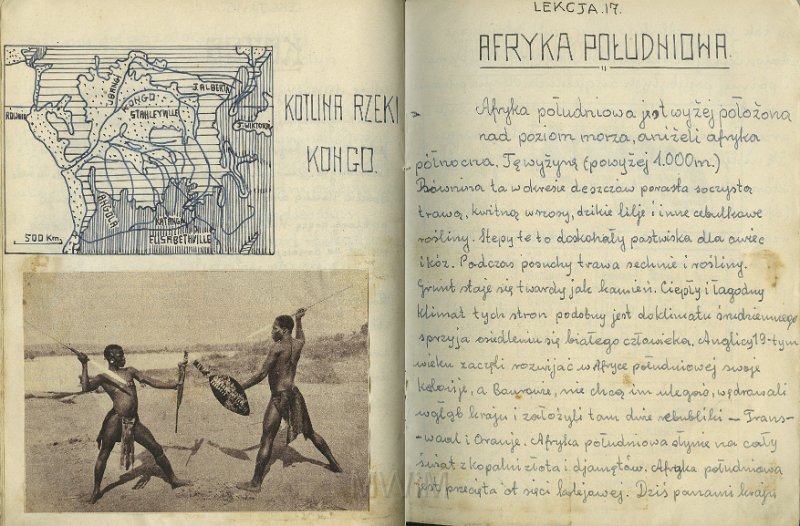 UBANGI
J. ALBERTA
KONGO
STANLEYVILLE
J. WIKTORIA
ANGOLA
KATANGA
ELISABETHVILLE
500 Km.
KOTLINA RZEKI
KONGO.
LEKCJA.17.
AFRYKA POŁUDNIOWA.
Afryka południowa jest wyżej położona
nad poziom morza, aniżeli afryka
północna. Tę wyżynę (powyżej 1.000m.)
Równina ta w okresie deszczów porasta soczystą
trawą, kwitną wrzosy, dzikie lilje i inne cebulkowe
rośliny. Stepy te to doskonały pastwiska dla owiec
i kóz. Podczas posuchy trawa sechnie i rośliny.
Grunt staje się twardy jak kamień. Ciepły i łagodny
klimat tych stron podobny jest do klimatu śródziemnego
sprzyja osiedleniu się białego człowieka. Anglicy 19-tym
wieku zaczęli rozwijać w Afryce południowej swoje
kolonije, a Burowie, nie chcą im ulegać, wędrowali
wgłąb kraju i założyli tam dwie rebubliki — Trans-
-waal i Oranje. Afryka południowa słynie na cały
świat z kopalni złota i djamętów. Afryka południowa
jest przecięta siecią kolejową. Dziś panami kraju